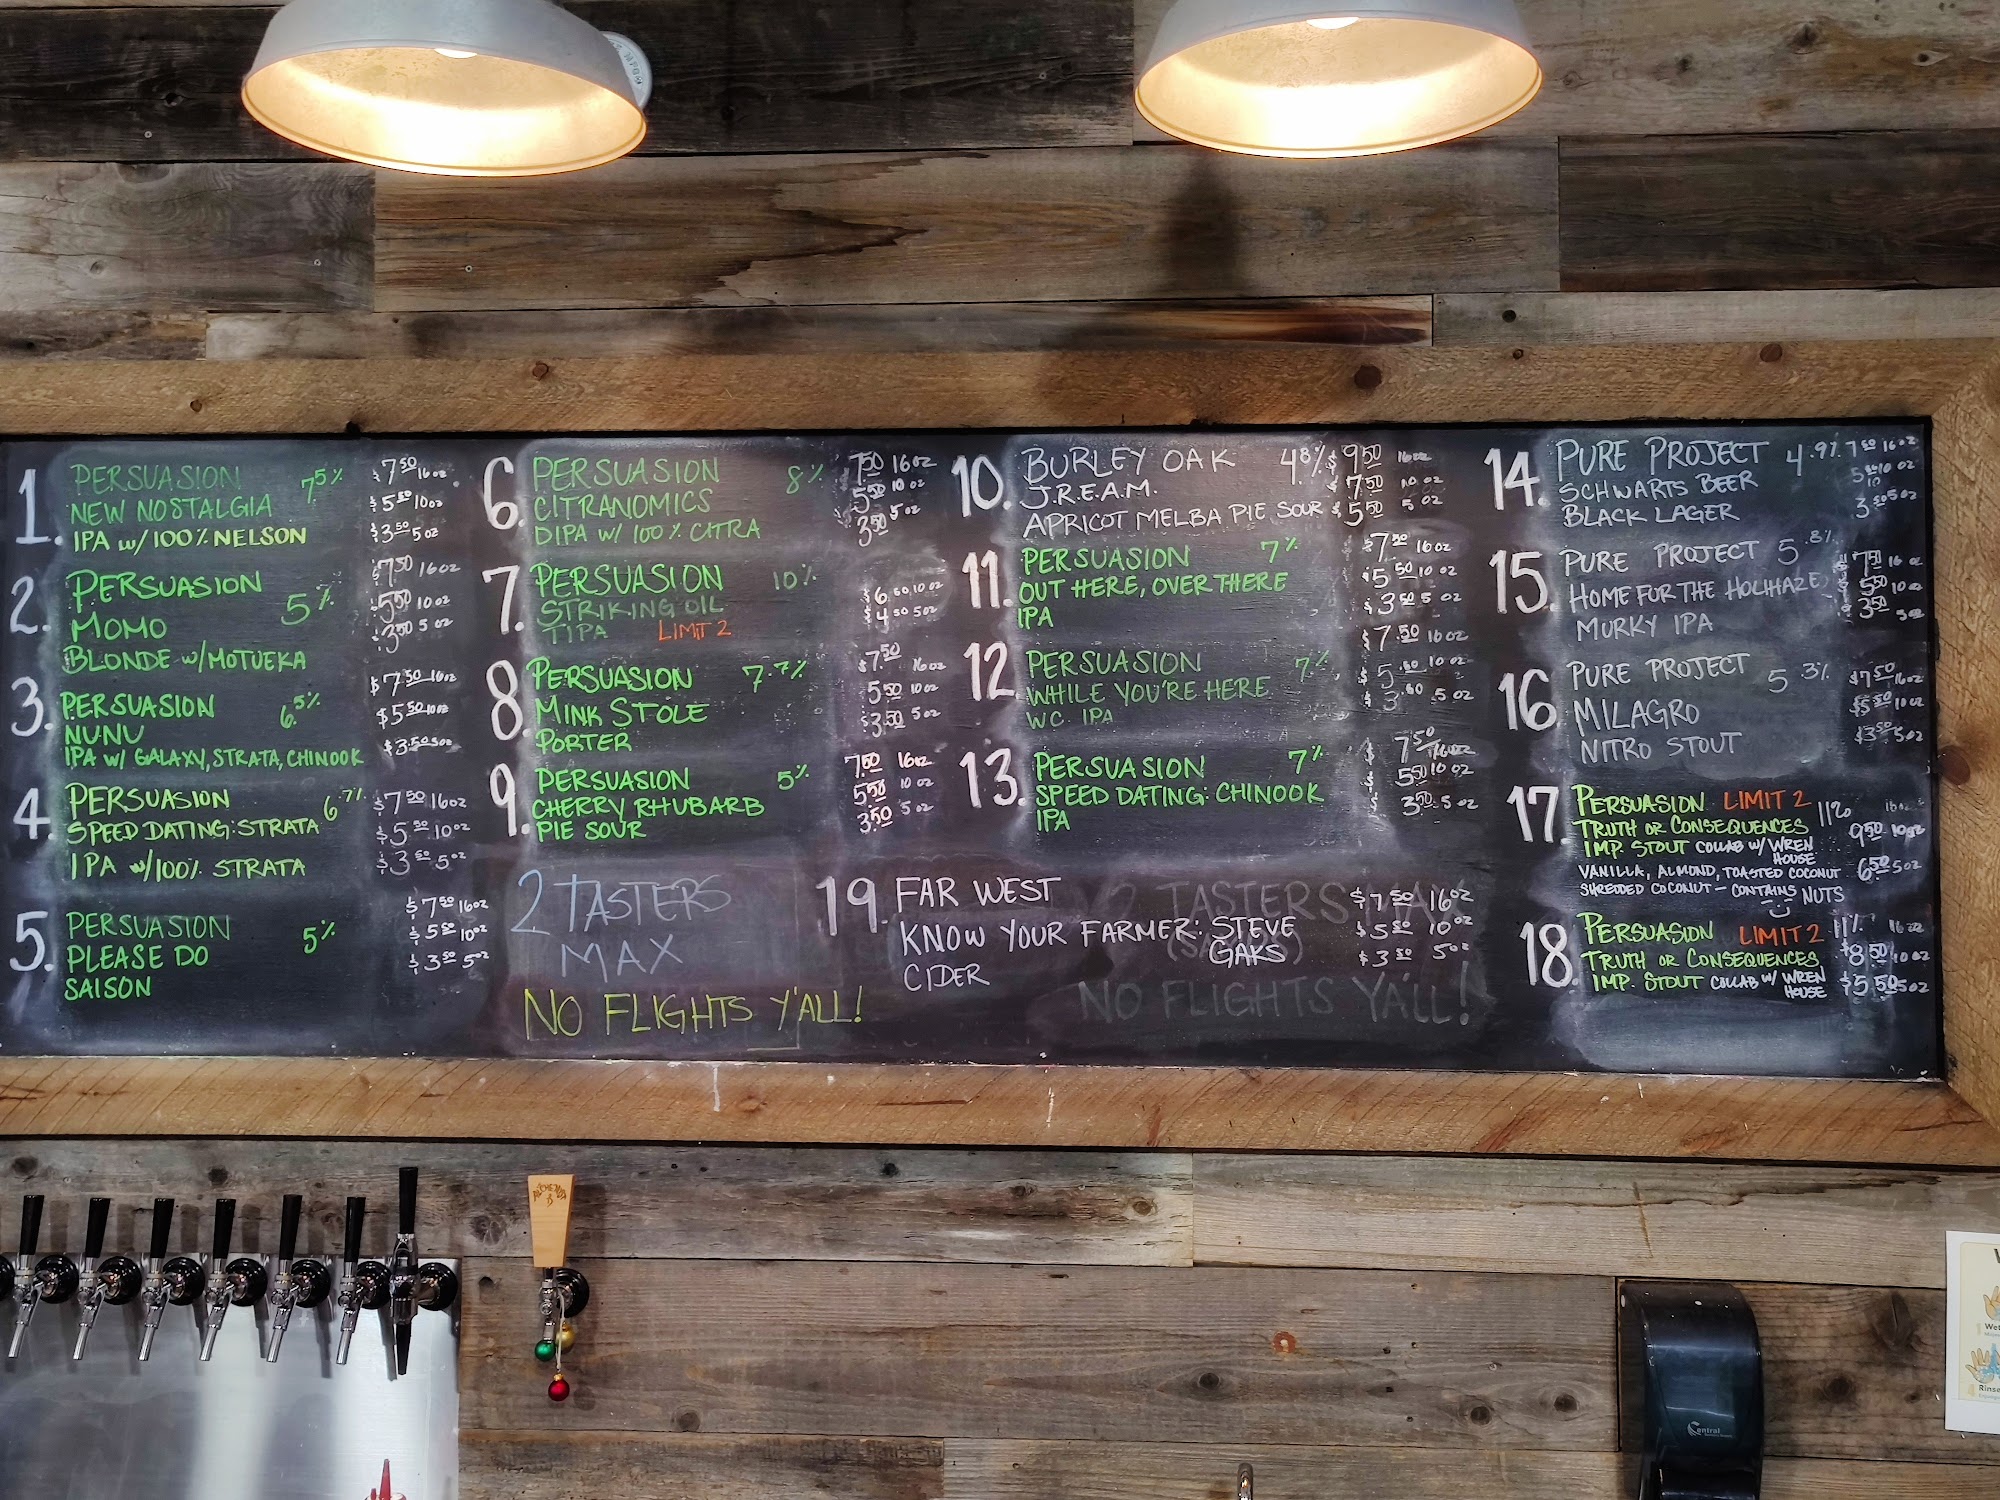 1. PERSUASION 7.5% $7.50 16oz
NEW NOSTALGIA $5.50 10oz
IPA w/ 100% NELSON $3.50 5oz
2. PERSUASION 5% $7.50 16oz
MOMO $5.50 10oz
BLONDE w/ MOTUEKA $3.50 5oz
3. PERSUASION 6.5% $7.50 16oz
NUNU $5.50 10oz
IPA W/ GALAXY, STRATA, CHINOOK $3.50 5oz
4. PERSUASION 6.7% $7.50 16oz
SPEED DATING: STRATA $5.50 10oz
IPA w/100% STRATA $3.50 5oz
5. PERSUASION 5% $7.50 16oz
PLEASE DO $5.50 10oz
SAISON $3.50 5oz
6. PERSUASION 8% 7.50 16oz
CITRANOMICS 5.50 10oz
DIPA W/ 100% CITRA 3.50 5oz
7. PERSUASION 10%
STRIKING OIL $6.50 10oz
TIPA LIMIT 2 $4.50 5oz
8. PERSUASION 7.7% $7.50 16oz
MINK STOLE 5.50 10oz
PORTER $3.50 5oz
9. PERSUASION 5% 7.50 16oz
CHERRY RHUBARB 5.50 10oz
PIE SOUR 3.50 5oz
2 TASTERS
MAX
NO FLIGHTS Y'ALL!
10. BURLEY OAK 4.8% $9.50 16oz
J.R.E.A.M. $7.50 10oz
APRICOT MELBA PIE SOUR $5.50 5oz
11. PERSUASION 7% $7.50 16oz
OUT HERE, OVER THERE $5.50 10oz
IPA $3.50 5oz
12. PERSUASION 7% $7.50 16oz
WHILE YOU'RE HERE $5.50 10oz
W.C. IPA $3.50 5oz
13. PERSUASION 7% $7.50 16oz
SPEED DATING: CHINOOK $5.50 10oz
IPA $3.50 5oz
19. FAR WEST $7.50 16oz
KNOW YOUR FARMER: STEVE $5.50 10oz
GAKS
CIDER $3.50 5oz
TASTERS MAX
NO FLIGHTS YA'LL!
14. PURE PROJECT 4.9% 7.50 16oz
SCHWARTS BEER 5.50 10oz
BLACK LAGER 3.50 5oz
15. PURE PROJECT 5.8% 7.50 16oz
HOME FOR THE HOLIHAZE 5.50 10oz
MURKY IPA 3.50 5oz
16. PURE PROJECT 5.3% $7.50 16oz
MILAGRO $5.50 10oz
NITRO STOUT $3.50 5oz
17. PERSUASION LIMIT 2 11% 16oz
TRUTH OR CONSEQUENCES 9.50 10oz
IMP. STOUT COLLAB W/ WREN
HOUSE
VANILLA, ALMOND, TOASTED COCONUT 6.50 5oz
SHREDDED COCONUT - CONTAINS NUTS
18. PERSUASION LIMIT 2 11% 16oz
TRUTH OR CONSEQUENCES $8.50 10oz
IMP. STOUT COLLAB W/ WREN
HOUSE $5.50 5oz
Central
Wet
Rinse